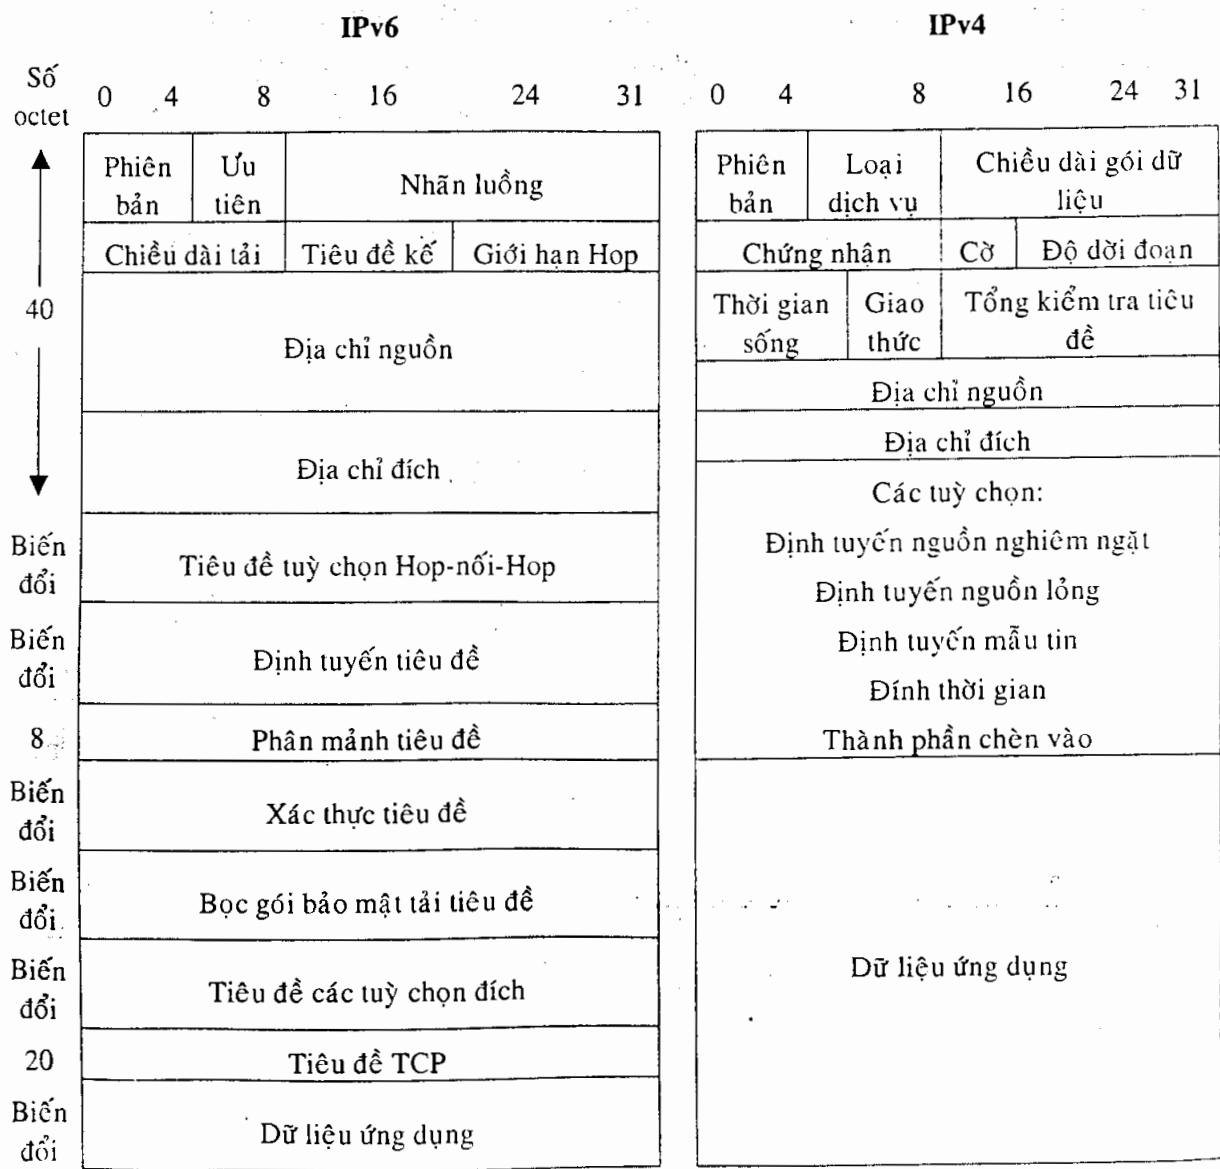 IPv6
Số
octet
0 4 8 16 24 31
Phiên
bản
Ưu
tiên
Nhãn luồng
Chiều dài tải
Tiêu đề kế
Giới hạn Hop
40
Địa chỉ nguồn
Địa chỉ đích
Biến
đổi
Tiêu đề tuỳ chọn Hop-nối-Hop
Biến
đổi
Định tuyến tiêu đề
8
Phân mảnh tiêu đề
Biến
đổi
Xác thực tiêu đề
Biến
đổi
Bọc gói bảo mật tải tiêu đề
Biến
đổi
Tiêu đề các tuỳ chọn đích
20
Tiêu đề TCP
Biến
đổi
Dữ liệu ứng dụng
IPv4
0 4 8 16 24 31
Phiên
bản
Loại
dịch vụ
Chiều dài gói dữ
liệu
Chứng nhận
Cờ
Độ dời đoạn
Thời gian
sống
Giao
thức
Tổng kiểm tra tiêu
đề
Địa chỉ nguồn
Địa chỉ đích
Các tuỳ chọn:
Định tuyến nguồn nghiêm ngặt
Định tuyến nguồn lỏng
Định tuyến mẫu tin
Đính thời gian
Thành phần chèn vào
Dữ liệu ứng dụng